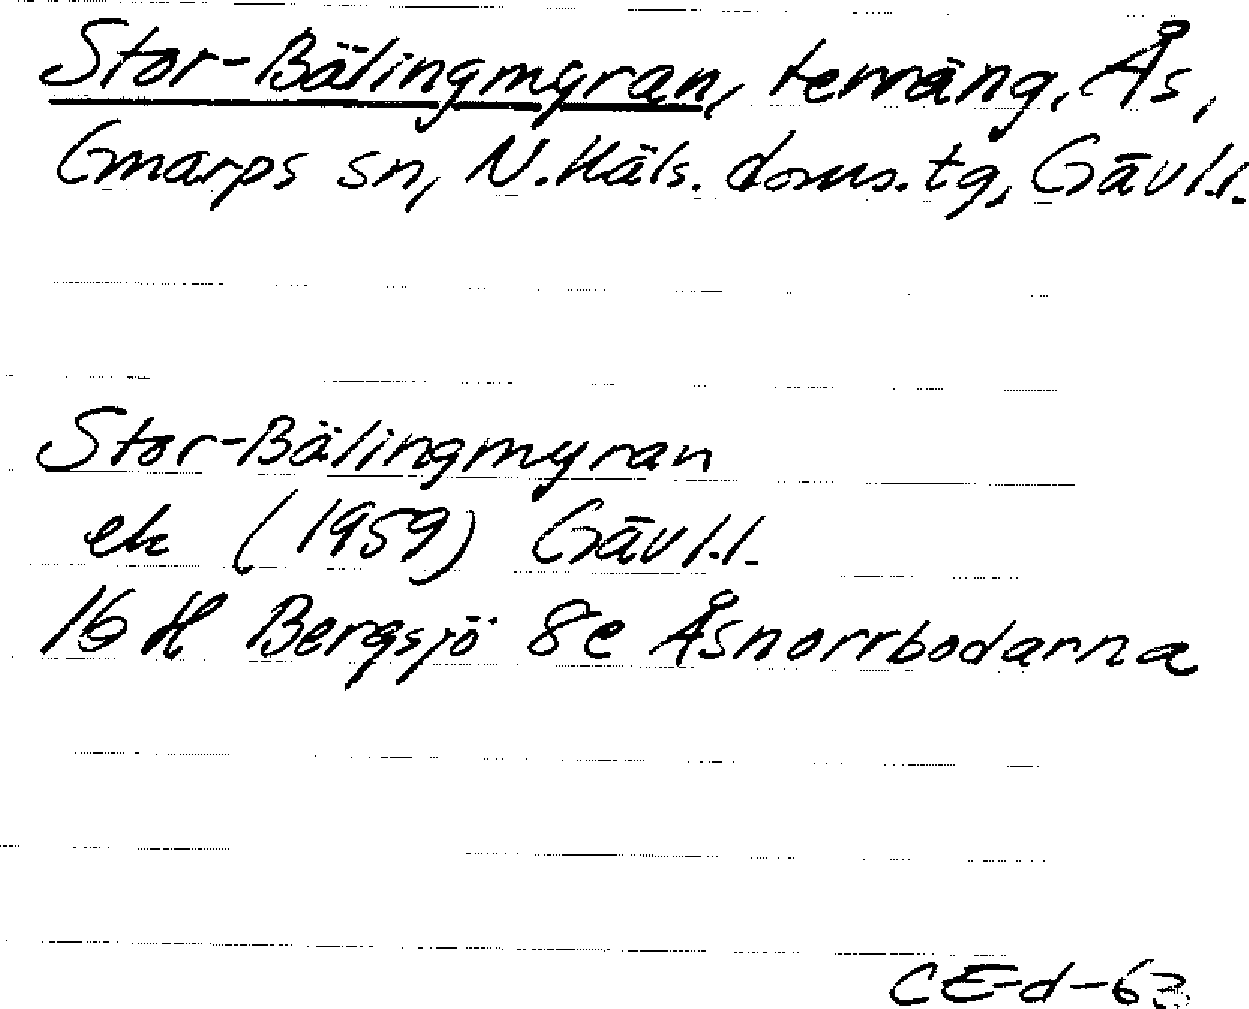 Stor-Bälingmyran, terräng, Ås,
Gnarps sn, N. Häls. doms. tg, Gävl.l.
Stor-Bälingmyran
ek (1959) Gävl.l.
16 H Bergsjö 8e Åsnorrbodarna
CE-d-63